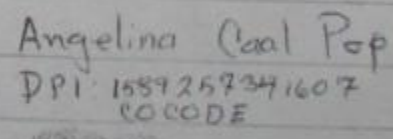 Angelina Caal Pop
DPI 1589257341607
COCODE